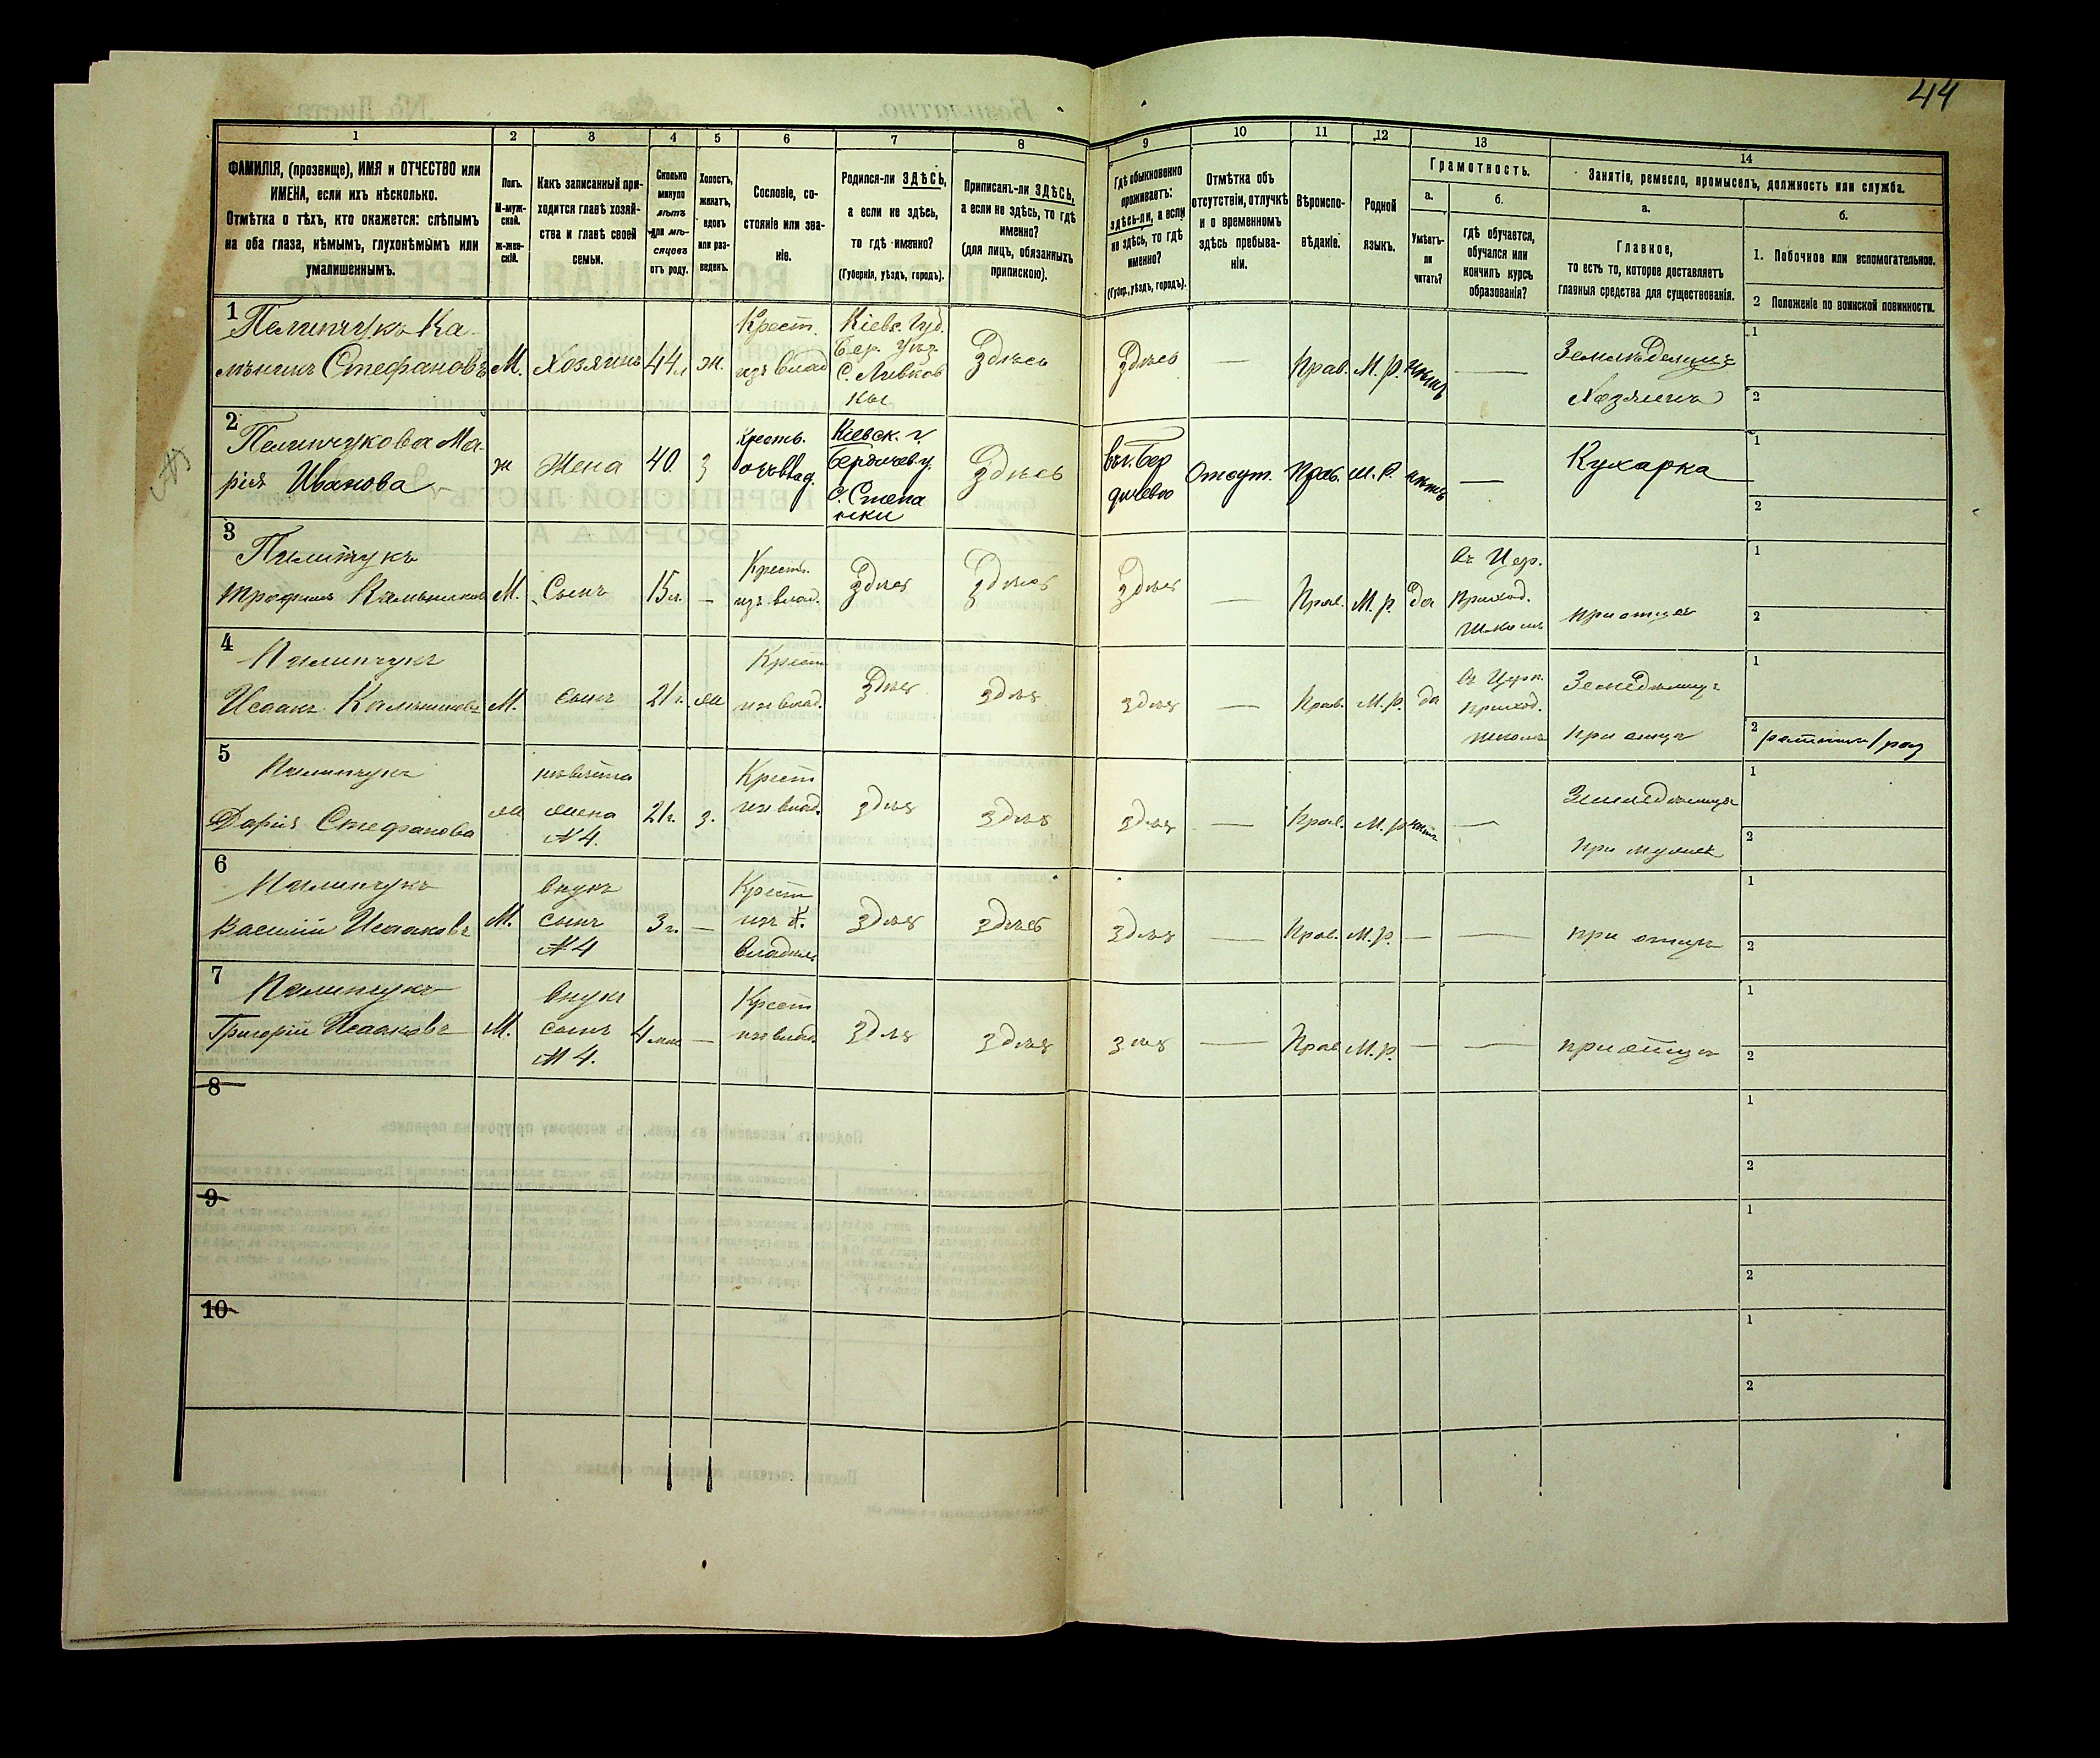 44
1
2
3
4
5
6
7
8
9
10
11
12
13
14
ФАМИЛІЯ, (прозвище), ИМЯ и ОТЧЕСТВО или
ИМЕНА, если ихъ нѣсколько.
Отмѣтка о тѣхъ, кто окажется: слѣпымъ
на оба глаза, нѣмымъ, глухонѣмымъ или
умалишеннымъ.
Полъ.
М-муж-
ской.
ж-жен-
скій.
Какъ записанный при-
ходится главѣ хозяй-
ства и главѣ своей
семьи.
Сколько
минуло
лѣтъ
или мѣ-
сяцевъ
отъ роду.
Холостъ,
женатъ,
вдовъ
или раз-
веденъ.
Сословіе, со-
стояніе или зва-
ніе.
Родился-ли ЗДѢСЬ,
а если не здѣсь,
то гдѣ именно?
(Губернія, уѣздъ, городъ).
Приписанъ-ли ЗДѢСЬ,
а если не здѣсь, то гдѣ
именно?
(для лицъ, обязанныхъ
припискою).
Гдѣ обыкновенно
проживаетъ:
здѣсь-ли, а если
не здѣсь, то гдѣ
именно?
(Губер., уѣздъ, городъ).
Отмѣтка объ
отсутствіи, отлучкѣ
и о временномъ
здѣсь пребыва-
ніи.
Вѣроиспо-
вѣданіе.
Родной
языкъ.
Грамотность.
а.
Умѣетъ-
ли
читать?
б.
гдѣ обучается,
обучался или
кончилъ курсъ
образованія?
Занятіе, ремесло, промыселъ, должность или служба.
а.
Главное,
то есть то, которое доставляетъ
главныя средства для существованія.
б.
1. Побочное или вспомогательное.
2 Положеніе по воинской повинности.
1
Пелипчукъ Ка-
Стефановъ
М.
Хозяинъ
44
ж.
Крест.
изъ влад
Кіевс. Губ.
Бер. уѣз
С. Ливков
цы
Здѣсь
Здѣсь
—
Прав.
М. р.
нѣтъ
—
Земледѣлецъ
Хозяинъ
1
2
2
Пелипчукова Ма-
рія Иванова
ж
Жена
40.
з
Крестъ.
влад.
Кіевск. г.
Бердичев у.
С. Степа
нки
Здѣсь
въ г. Бер
дичево
Отсут.
Прав.
М. Р.
нѣтъ
—
Кухарка
1
2
3
Пилипчукъ
Трофимъ Кальниковъ
М.
Сынъ
15 л.
—
Крест.
изъ влад.
Здѣсь
Здѣсь
Здѣсь
—
Прав.
М. р.
да
Въ Цер.
Приход.
Школѣ
при отцѣ
1
2
4
Пилипчукъ
Исаакъ Кальниковъ
М.
сынъ
21 г.
ж
Крест
изъ влад.
Здѣсь
здѣсь
здѣсь
—
Прав.
М. р.
да
Въ Церк.
приход.
школѣ
Земледѣлецъ
при отцѣ
1
2 ратникъ 1 раз
5
Пилипчукъ
Дарія Стефанова
ж
невѣстка
жена
№ 4.
21 г.
з.
Крест
изъ влад.
здѣсь
здѣсь
здѣсь
—
Прав.
М. р
нѣтъ
—
Земледѣлица
при мужѣ
1
2
6
Пилипчукъ
Василій Исааковъ
М.
внукъ
сынъ
№ 4
3 г.
—
Крест
изъ
владѣл.
здѣсь
здѣсь
здѣсь
—
Прав.
М. р.
—
—
при отцѣ
1
2
7
Пилипчукъ
Григорій Исааковъ
М.
внукъ
сынъ
№ 4.
4 мѣс
—
Крест
изъ влад.
здѣсь
здѣсь
здѣсь
—
Прав
М. р.
—
—
при отцѣ
1
2
8
1
2
9
1
2
10
1
2